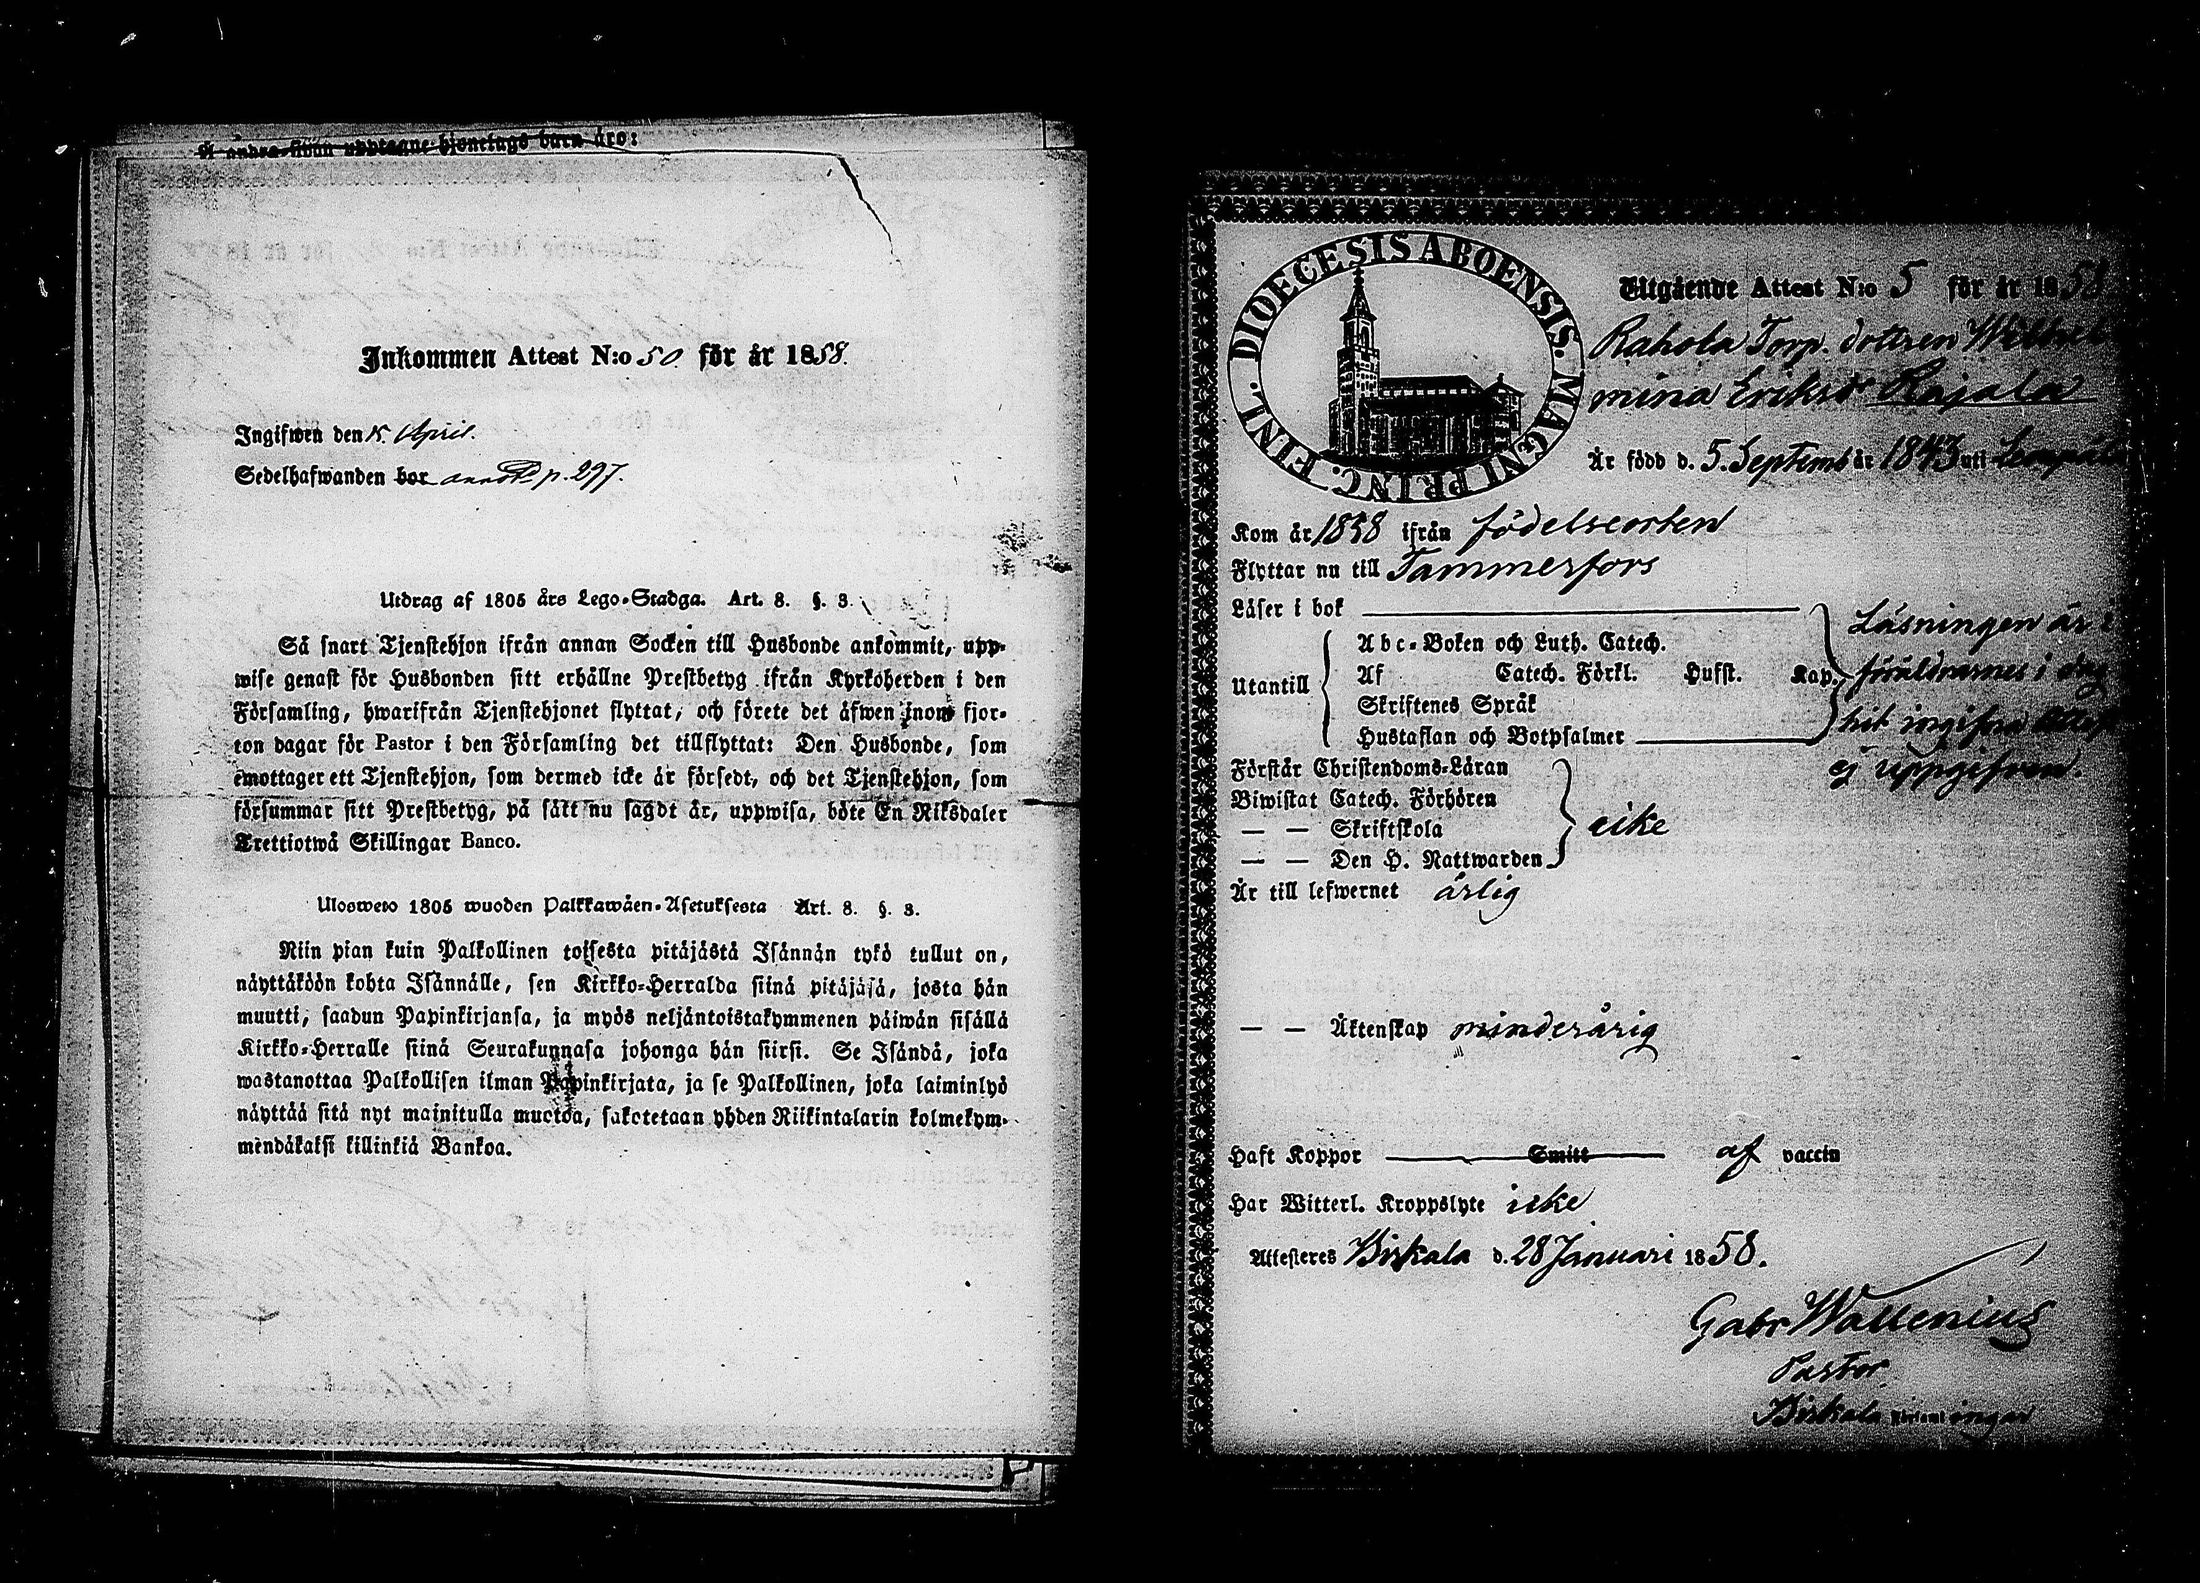 äro:
Inkommen Attest N:o 50 för år 1858.
Ingifwen den April.
Sedelhafwanden bor p. 297.
Utdrag af 1805 års Lego-Stadga. Art. 8. §. 3.
Så snart Tjenstehjon ifrån annan Socken till Husbonde ankommit, upp-
wise genast för Husbonden sitt erhållne Prestbetyg ifrån Kyrkoherden i den
Församling, hwarifrån Tjenstehjonet flyttat, och förete det äfwen inom fjor-
ton dagar för Pastor i den Församling det tillflyttat: Den Husbonde, som
emottager ett Tjenstehjon, som dermed icke är försedt, och det Tjenstehjon, som
försummar sitt Prestbetyg, på sätt nu sagdt är, uppwisa, böte En Riksdaler
Trettiotwå Skillingar Banco.
Ulosweto 1805 wuoden Palkkawäen-Asetuksesta Art. 8. §. 3.
Niin pian kuin Palkollinen toisesta pitäjästä Isännän tykö tullut on,
näyttäköön kohta Isännälle, sen Kirkko-Herralda siinä pitäjäsä, josta hän
muutti, saadun Papinkirjansa, ja myös neljäntoistakymmenen päiwän sisällä
Kirkko-Herralle siinä Seurakunnasa johonga hän siirsi. Se Isändä, joka
wastanottaa Palkollisen ilman Papinkirjata, ja se Palkollinen, joka laiminlyö
näyttää sitä nyt mainitulla muotoa, sakotetaan yhden Riikintalarin kolmekym-
mendäkaksi killinkiä Bankoa.
FINL. DIOECESIS ABOENSIS. MAGNI PRINC.
Utgående Attest N:o 5 för år 1858
Rahola Torp. dottren Wilhel
mina Eriksdr Rajala
Är född d. 5. Septemb år 1843 uti
Kom år 1858 ifrån födelseorten
Flyttar nu till Tammerfors
Läser i bok
Utantill
Abc-Boken och Luth. Catech.
Af Catech. Förkl. Hufst. Kap.
Skriftenes Språk
Hustaflan och Botpsalmer
Läsningen är i
föräldrarnes i dag
hit ingifna Attest
ej uppgifven.
Förstår Christendoms-Läran
Biwistat Catech. Förhören
— — Skriftskola
— — Den H. Nattwarden
icke
Är till lefwernet ärlig
— — Äktenskap minderårig
Haft Koppor Smitt af vaccin
Har Witterl. Kroppslyte icke
Attesteres Birkala d. 28 Januari 1858.
Gabr Wallenius
Pastor
Birkala